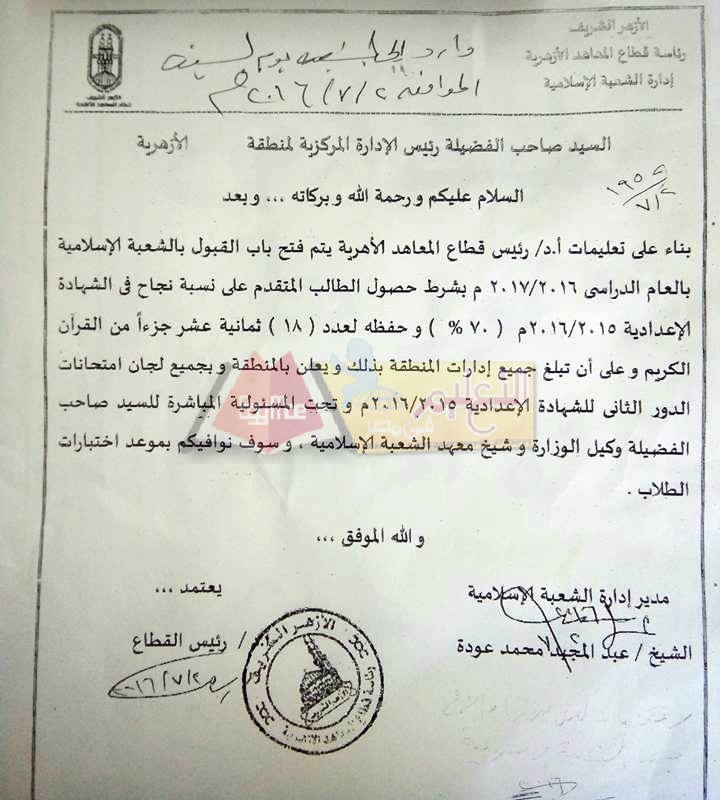 الأزهر الشريف
رئاسة قطاع المعاهد الأزهرية
إدارة الشعبة الإسلامية
الأزهر الشريف
وارد يوم السبت
الموافق ٢٠١٦/٧/٢م
السيد صاحب الفضيلة رئيس الإدارة المركزية لمنطقة الأزهرية
١٩٥٥
٧/٢
السلام عليكم ورحمة الله وبركاته ،،، وبعد
بناء على تعليمات أ.د/ رئيس قطاع المعاهد الأهرية يتم فتح باب القبول بالشعبة الإسلامية
بالعام الدراسى ٢٠١٧/٢٠١٦ م بشرط حصول الطالب المتقدم على نسبة نجاح فى الشهادة
الإعدادية ٢٠١٦/٢٠١٥م ( ٧٠ % ) و حفظه لعدد ( ١٨ ) ثمانية عشر جزءاً من القرآن
الكريم و على أن تبلغ جميع إدارات المنطقة بذلك و يعلن بالمنطقة و بجميع لجان امتحانات
الدور الثانى للشهادة الإعدادية ٢٠١٦/٢٠١٥م و تحت المسئولية المباشرة للسيد صاحب
التعليم
فى مصر
الفضيلة وكيل الوزارة و شيخ معهد الشعبة الإسلامية ، و سوف نوافيكم بموعد اختبارات
الطلاب .
و الله الموفق ،،،
مدير إدارة الشعبة الإسلامية
يعتمد ،،،
الشيخ / عبد المجيد محمد عودة
/ رئيس القطاع
٢٠١٦/٧/٢
الأزهر الشريف
رئاسة قطاع المعاهد الأزهرية